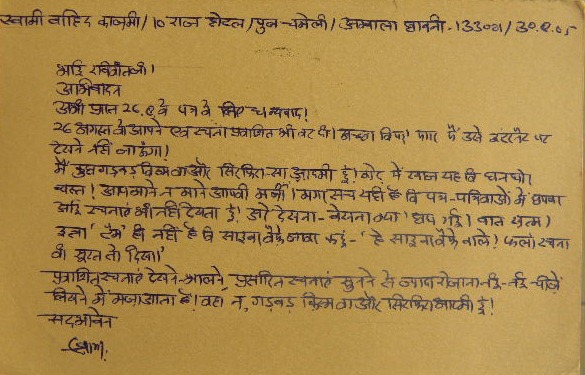 स्वामी वाहिद काज़मी / 10 राज होटल / पुल-चमेली / अम्बाला छावनी-133001 / 30.8.05
भाई रविजी!
अभिवादन
अभी प्राप्त 26.8 के पत्र के लिए धन्यवाद!
26 अगस्त को आपने एक रचना प्रकाशित भी कर दी। अच्छा किया! मगर मैं उसे इंटरनेट पर
देखने नहीं जाऊंगा!
मैं कुछ गड़बड़ किस्म का और सिरफिरा-सा आदमी हूं। नोट में खास यह कि
आप माने न माने आपकी मर्जी। मगर सच यही है कि पत्र-पत्रिकाओं में छपकर
आई रचनाएं भी नहीं देखता हूं! अरे देखना-वेखना क्या! छप गई! बात खत्म।
इतना टैम ही नहीं है कि साइबर कैफे जाया करूं- 'हे साइबर कैफे वाले! फलां रचना
की सूरत तो दिखा!'
प्रकाशित रचनाएं देखने-भालने, प्रसारित रचनाएं सुनने से ज्यादा रोजाना नई-नई चीजें
लिखने में मजा आता है! कहा न, गड़बड़ किस्म का और सिरफिरा आदमी हूं!
सद्भावेन